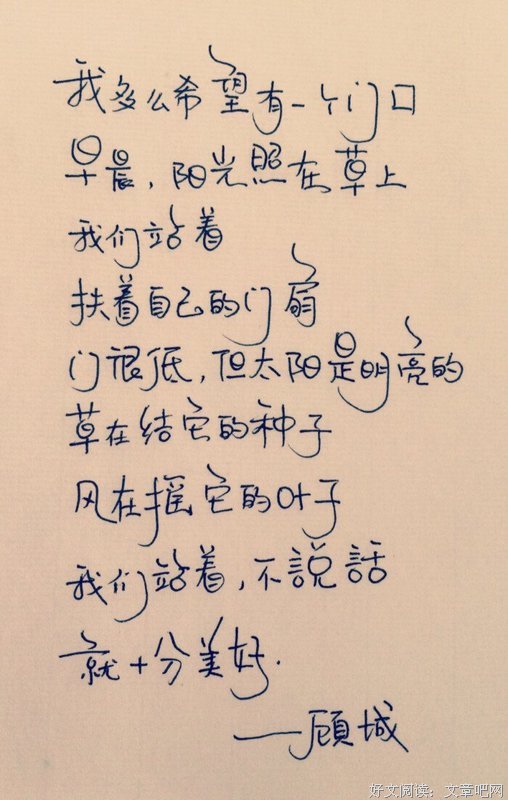 我多么希望有一个门口
早晨，阳光照在草上
我们站着
扶着自己的门扇
门很低，但太阳是明亮的
草在结它的种子
风在摇它的叶子
我们站着，不説話
就十分美好.
——顾城
好文阅读：文章吧网